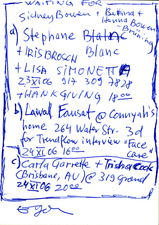 WAITING FOR
Sidney Bowen + Butuna +
Hanna Bowen - Bruning
a) Stephane Blatn
+ IRIS BROSCH Blanc
+ LISA SIMONETT
23 XI 06 917 309 7828
+ HANKGIVING 18 00
b) Lawal Fausat @ Comyah's
home 264 Water Str. 3d
for TrendKow interview + Face
24 XI 06 16 00 case
c) Carla Garrette + Trisha Cook
(Brisbane, AU) @ 319 Grand
24 XI 06 20 00